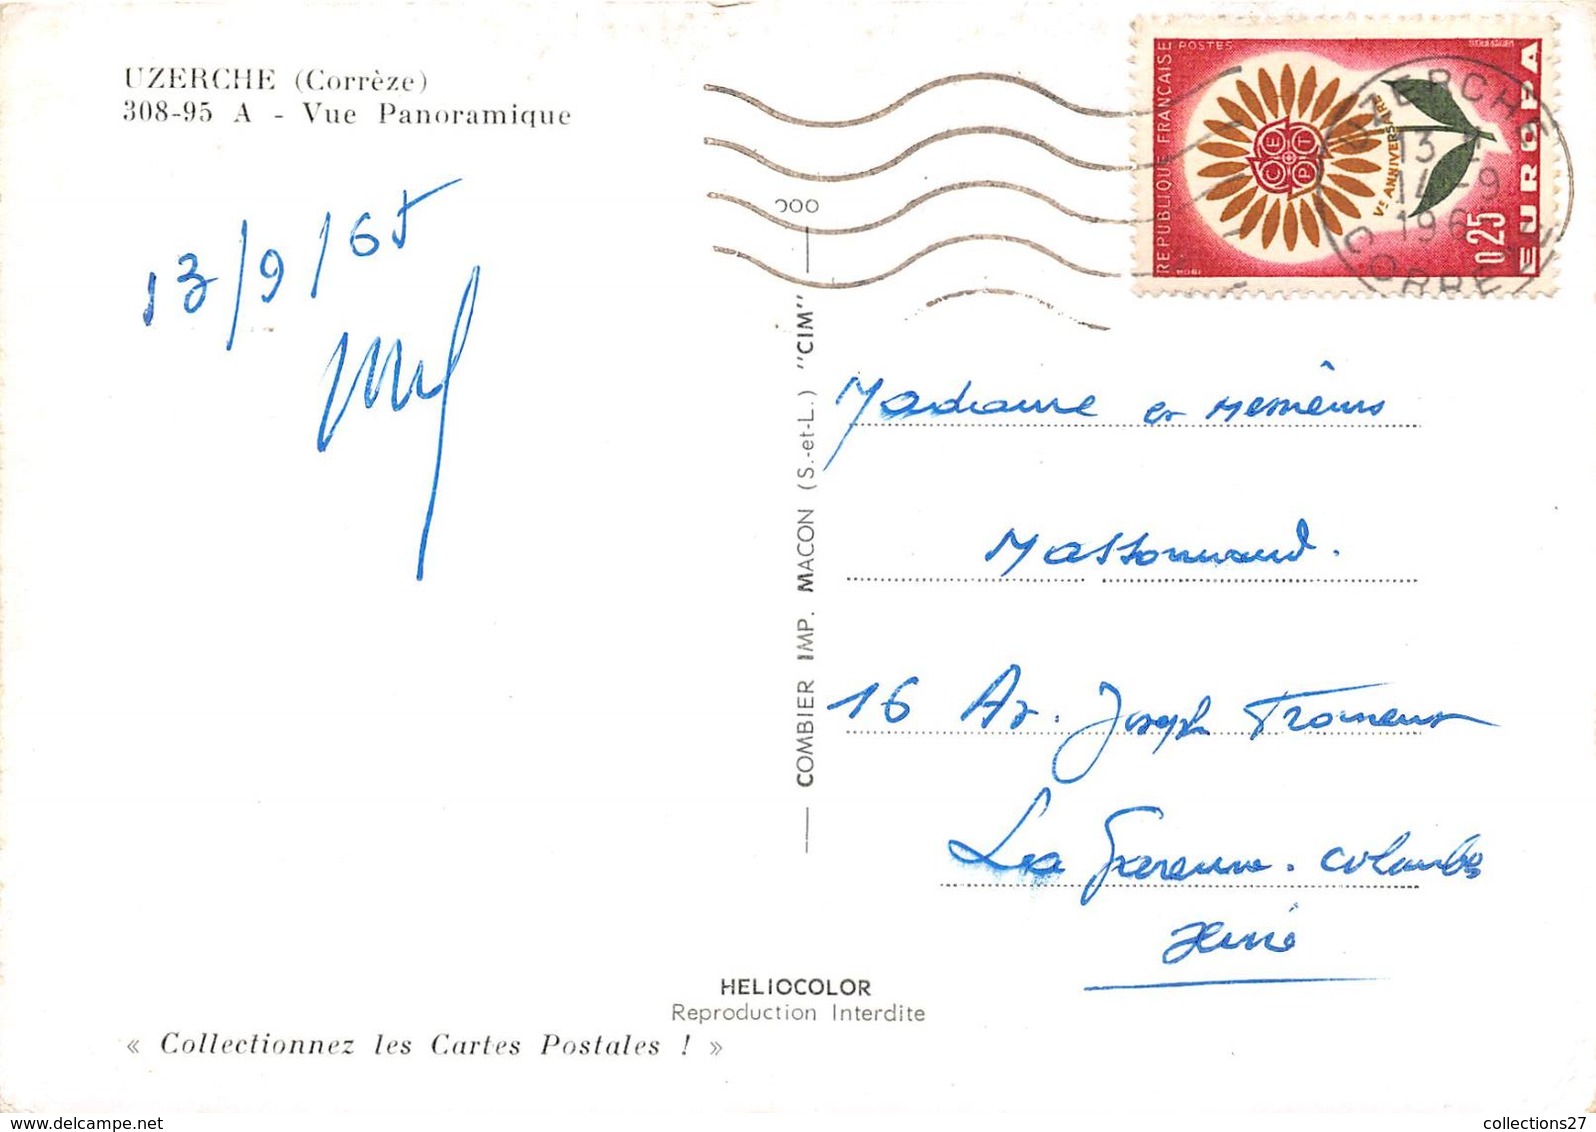 UZERCHE (Corrèze)
308-95 A - Vue Panoramique
13/9/65
RÉPUBLIQUE FRANÇAISE
POSTES
CEPT
Ve ANNIVERSAIRE
0,25
EUROPA
UZERCHE
13
14 -9
196
CORRÈZE
COMBIER IMP. MACON (S.-et-L.) "CIM"
Madame et
Massonnaud.
16 Av. Joseph
La Garenne. Colombes
Seine
HELIOCOLOR
Reproduction Interdite
« Collectionnez les Cartes Postales ! »
collections27